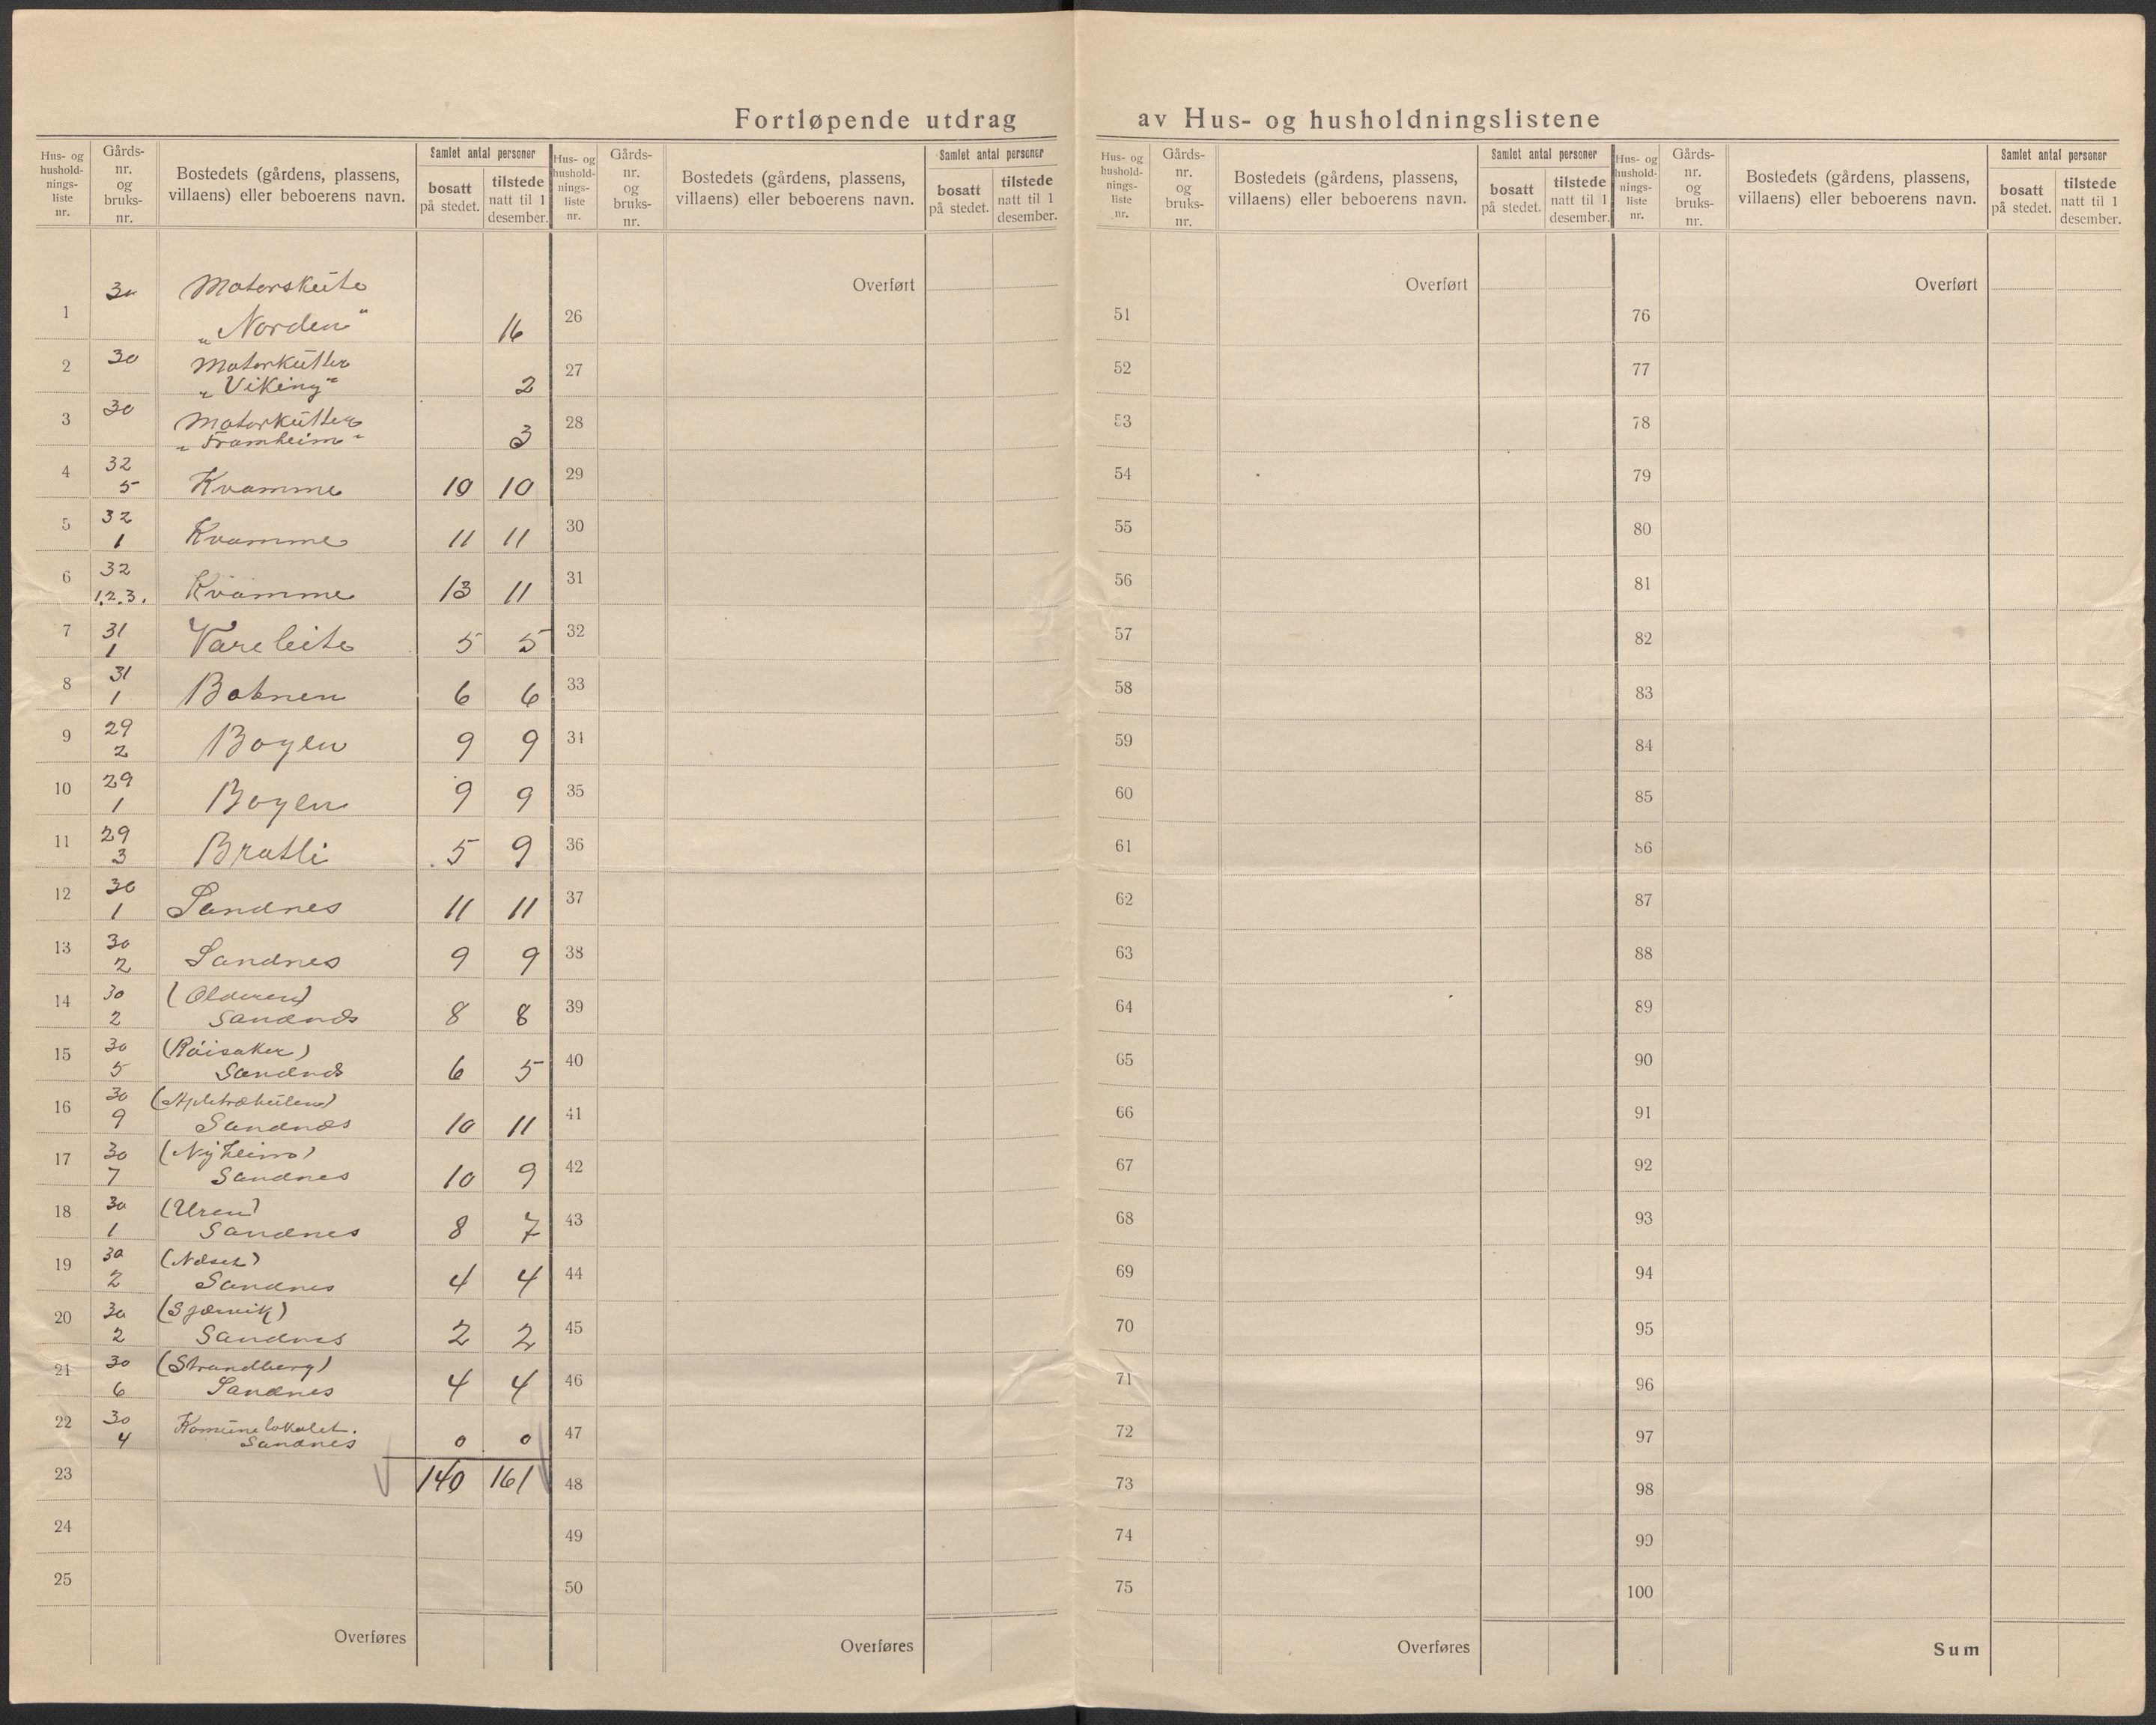 Fortløpende utdrag av Hus- og husholdningslistene
Hus- og hushold-nings-liste nr.
Gårds-nr. og bruks-nr.
Bostedets (gårdens, plassens, villaens) eller beboerens navn.
Samlet antal personer
bosatt på stedet.
tilstede natt til 1 desember.
1 30 Motorskøite „Norden" 16
2 30 Motorkutter „Viking" 2
3 30 Motorkutter „Framheim" 3
4 32 5 Kvamme 10 10
5 32 1 Kvamme 11 11
6 32 1.2.3. Kvamme 13 11
7 31 1 Vareleite 5 5
8 31 1 Botnen 6 6
9 29 2 Bogen 9 9
10 29 1 Bogen 9 9
11 29 3 Bratli 5 9
12 30 1 Sandnes 11 11
13 30 2 Sandnes 9 9
14 30 2 (Olderen) Sandnes 8 8
15 30 5 (Röisaker) Sandnes 6 5
16 30 9 Sandnæs 10 11
17 30 7 (Nyheim) Sandnes 10 9
18 30 1 (Uren) Sandnes 8 7
19 30 2 (Neset) Sandnes 4 4
20 30 2 Sandnes 2 2
21 30 6 (Strandberg) Sandnes 4 4
22 30 4 Komunelokalet. Sandnes 0 0
23 140 161
24
25
Overføres
Hus- og hushold-nings-liste nr.
Gårds-nr. og bruks-nr.
Bostedets (gårdens, plassens, villaens) eller beboerens navn.
Samlet antal personer
bosatt på stedet.
tilstede natt til 1 desember.
Overført
26
27
28
29
30
31
32
33
34
35
36
37
38
39
40
41
42
43
44
45
46
47
48
49
50
Overføres
Hus- og hushold-nings-liste nr.
Gårds-nr. og bruks-nr.
Bostedets (gårdens, plassens, villaens) eller beboerens navn.
Samlet antal personer
bosatt på stedet.
tilstede natt til 1 desember.
Overført
51
52
53
54
55
56
57
58
59
60
61
62
63
64
65
66
67
68
69
70
71
72
73
74
75
Overføres
Hus- og hushold-nings-liste nr.
Gårds-nr. og bruks-nr.
Bostedets (gårdens, plassens, villaens) eller beboerens navn.
Samlet antal personer
bosatt på stedet.
tilstede natt til 1 desember.
Overført
76
77
78
79
80
81
82
83
84
85
86
87
88
89
90
91
92
93
94
95
96
97
98
99
100
Sum